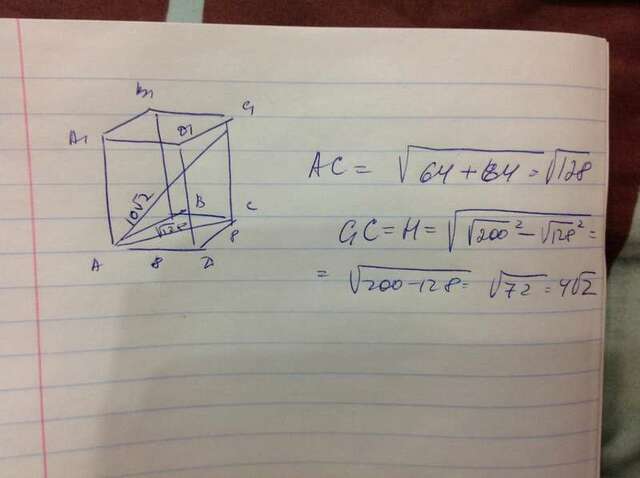 B1
C1
A1
D1
10√2
B
C
√128
8
A
8
D
AC = √64 + 64 = √128
C1C = H = √√200² - √128² =
= √200-128 = √72 = 4√2